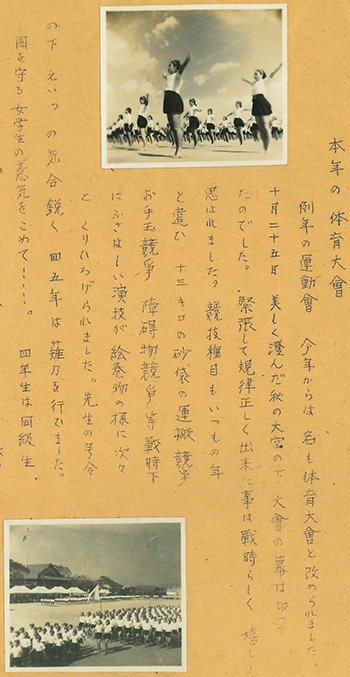 本年の体育大會
例年の運動會　今年からは　名も体育大會と改められました。
十月二十五日　美しく澄んだ秋の大空の下　大會の幕は切つて
たのでした。　緊張して規律正しく出来た事は戰時らしく　嬉しく
思はれました？　競技種目もいつもの年
と違ひ　十三キロの砂袋の運搬競爭
お手玉競爭　障碍物競爭等戰時下
にふさはしい演技が繪巻物の様に次々
と　くりひろげられました。先生の号令
の下　えいつ　の気合鋭く　四五年は薙刀を行ひました。
國を守る女学生の意気をこめて――。　四年生は同級生